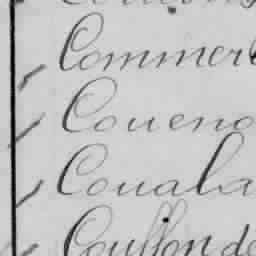 Commer
Coueno
Couala
Couffon de